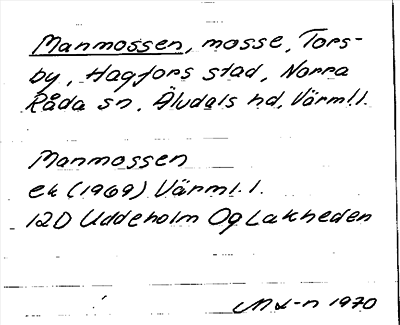 Manmossen, mosse, Tors-
by, Hagfors stad, Norra
Råda sn, Älvdals hd, Värml.l.
Manmossen
ek (1969) Värml.l.
12D Uddeholm Og Lakheden
M L-n 1970